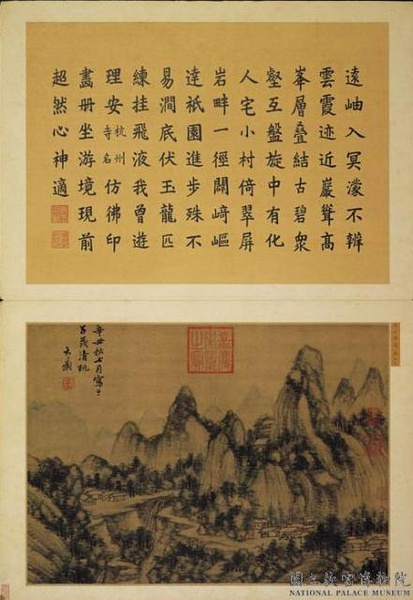 遠岫入冥濛不辨
雲霞迹近巖聳高
峯層叠結古碧衆
壑互盤旋中有化
人宅小村倚翠屏
岩畔一徑闢﨑嶇
達祇園進步殊不
易澗底伏玉龍匹
練挂飛液我曾遊
理安杭州寺名仿彿印
畫册坐游境現前
超然心神適
辛丑
七月寫
子茂清
大癡
國立故宮博物院
NATIONAL PALACE MUSEUM